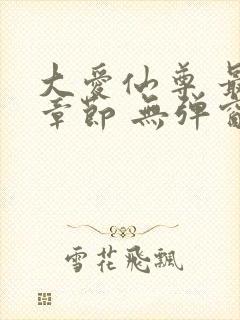 大愛仙尊 最
章節 無彈窗
雪花飛飄